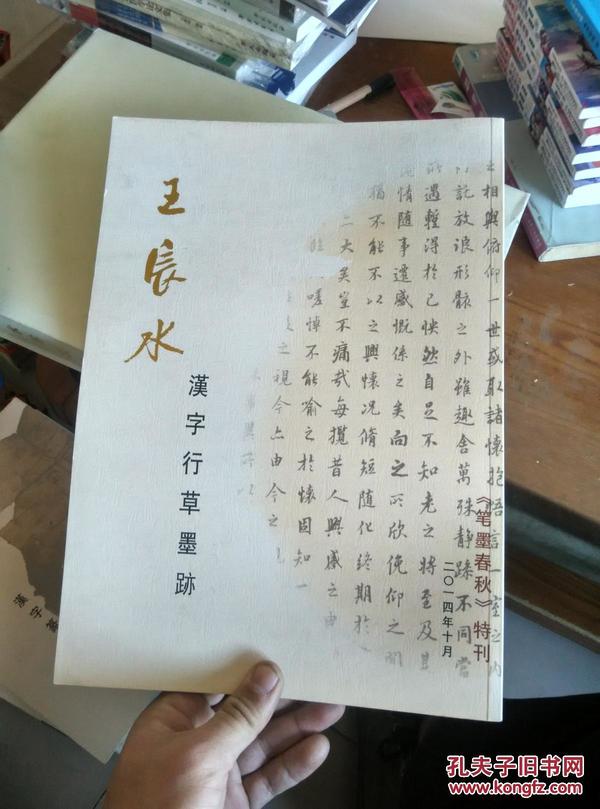 王辰水
漢字行草墨跡
相與俯仰一世或取諸懷抱悟言一室之內
託放浪形骸之外雖趣舍萬殊靜躁不同當
所遇暫得於己怏然自足不知老之將至及其
情隨事遷感慨係之矣向之所欣俛仰之間
猶不能不以之興懷況脩短隨化終期於
大矣豈不痛哉每攬昔人興感之由
嗟悼不能喻之於懷固知一
之視今亦由今之
《笔墨春秋》特刊
二〇一四年十月
漢字
孔夫子旧书网
www.kongfz.com